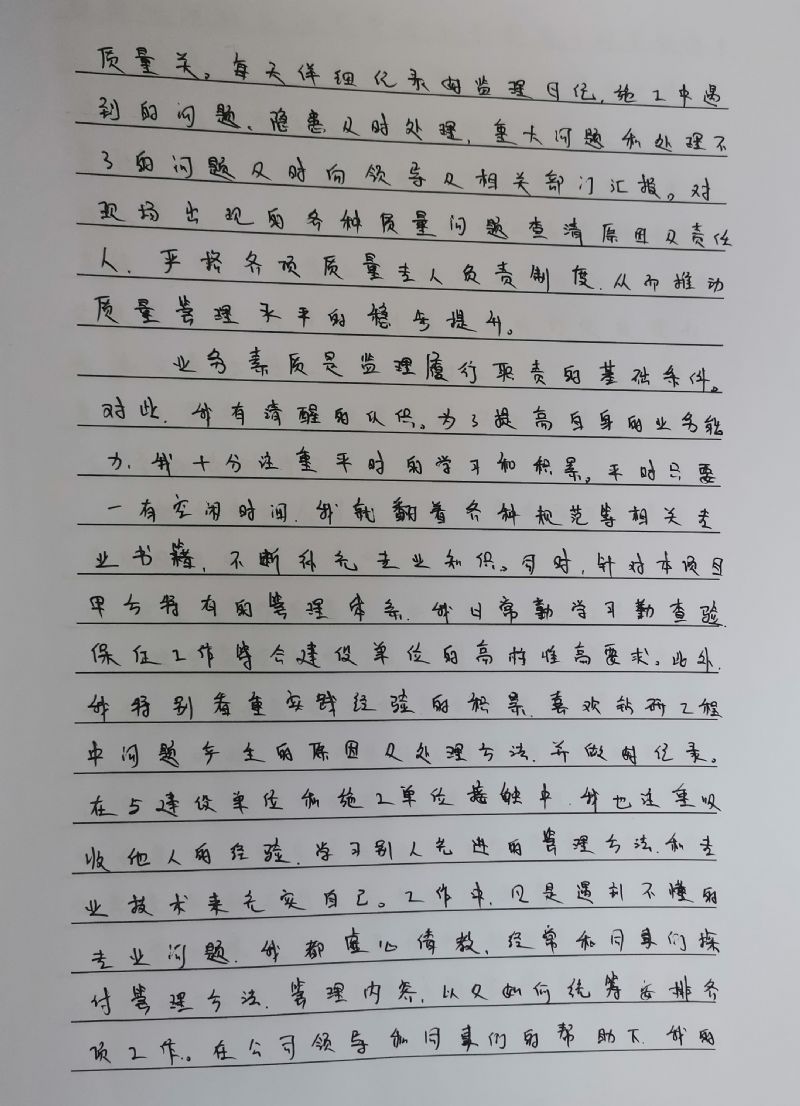 质量关。每天详细记录好监理日记,施工中遇
到的问题、隐患及时处理,重大问题和处理不
了的问题及时向领导及相关部门汇报。对
现场出现的各种质量问题查清原因及责任
人、严格各项质量专人负责制度,从而推动
质量管理水平的稳步提升。
业务素质是监理履行职责的基础条件。
对此,我有清醒的认识。为了提高自身的业务能
力,我十分注重平时的学习和积累。平时只要
一有空闲时间,我就翻看各种规范等相关专
业书籍,不断补充专业知识。同时,针对本项目
甲方特有的管理体系,我日常勤学习勤查验,
保证工作符合建设单位的高标准高要求。此外,
我特别看重实践经验的积累,喜欢钻研工程
中问题产生的原因及处理方法,并做好记录。
在与建设单位和施工单位接触中,我也注重吸
收他人的经验,学习别人先进的管理方法和专
业技术来充实自己。工作中,凡是遇到不懂的
专业问题,我都虚心请教,经常和同事们探
讨管理方法、管理内容,以及如何统筹安排各
项工作。在公司领导和同事们的帮助下,我的